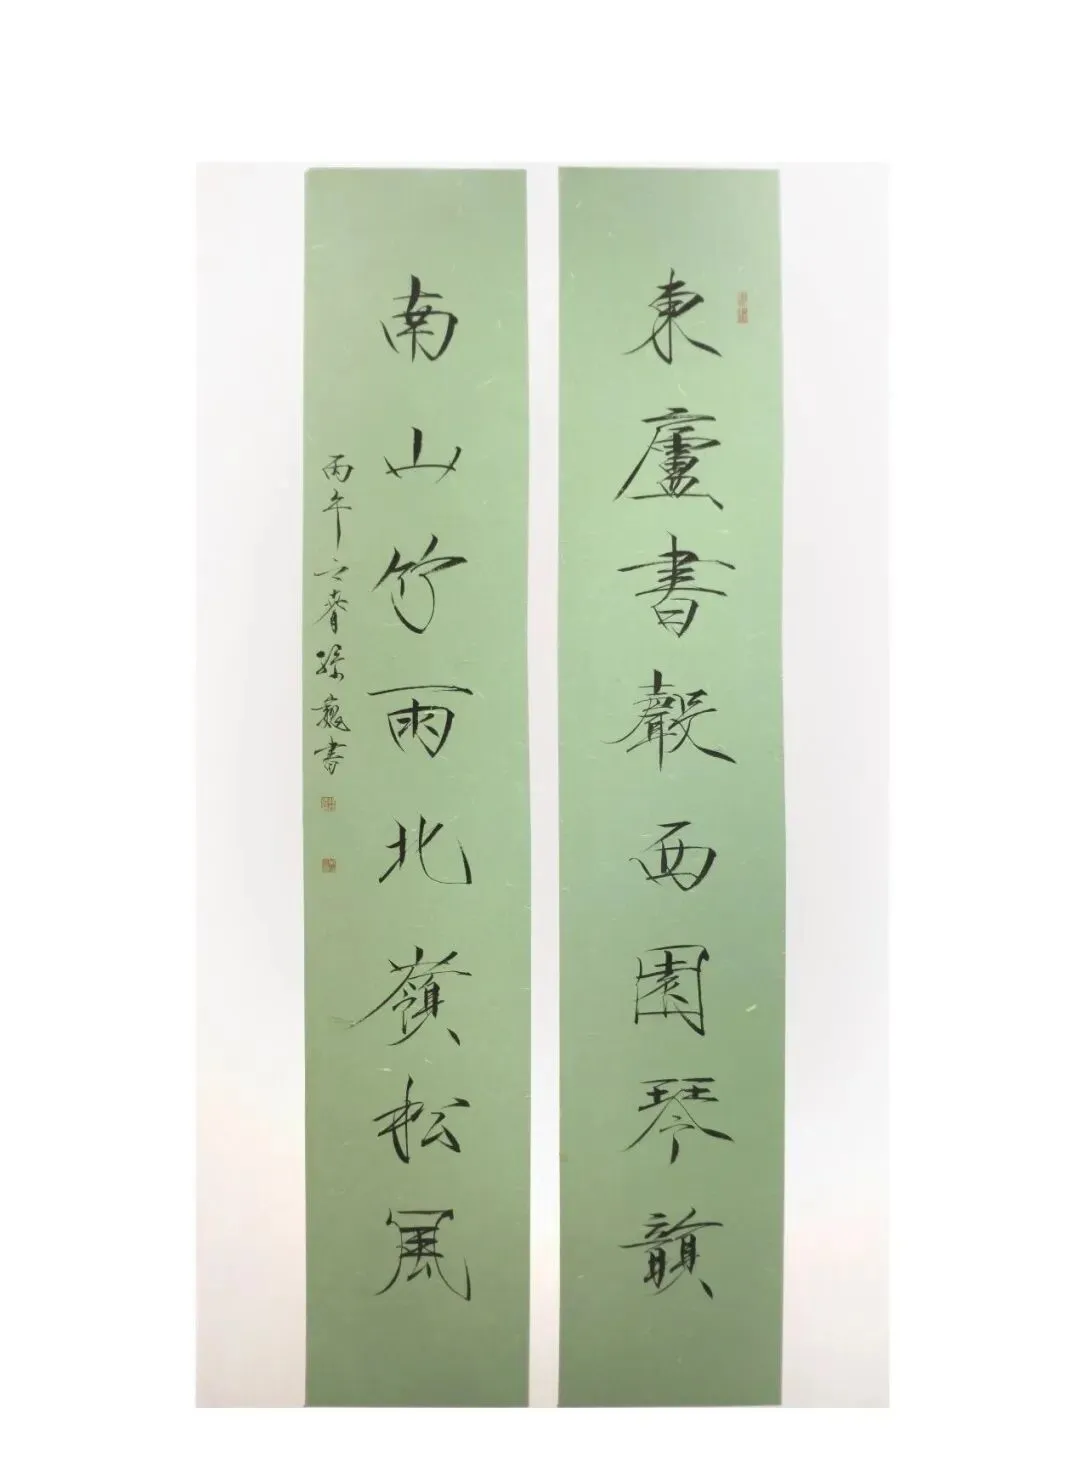 東廬書聲西園琴韻
南山竹雨北嶺松風
丙午之春孫巍書